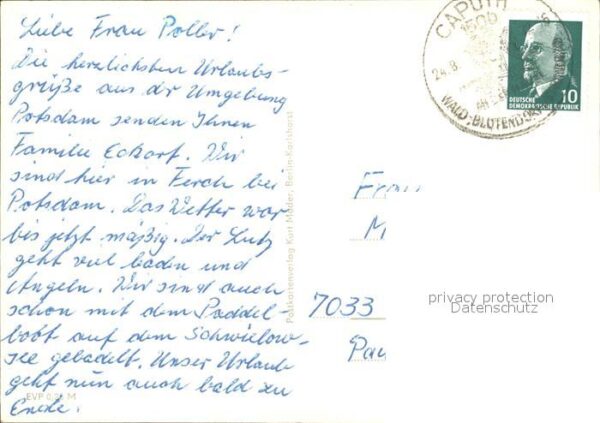 Liebe Frau Poller!
Die herzlichsten Urlaubs-
grüße aus der Umgebung
Potsdam senden Ihnen
Familie Eckart. Wir
sind hier in Ferch bei
Potsdam. Das Wetter war
bis jetzt mäßig. Der Lutz
geht viel baden und
Angeln. Wir sind auch
schon mit dem Paddel-
boot auf dem Schwielow-
see gebadelt. Unser Urlaub
geht nun auch bald zu
Ende.
EVP 0,20 M
Postkartenverlag Kurt Mader, Berlin-Karlshorst
CAPUTH
24.8.
WALD-BLÜTEN
DEUTSCHE
DEMOKRATISCHE REPUBLIK
10
Frau
M
7033
privacy protection
Datenschutz